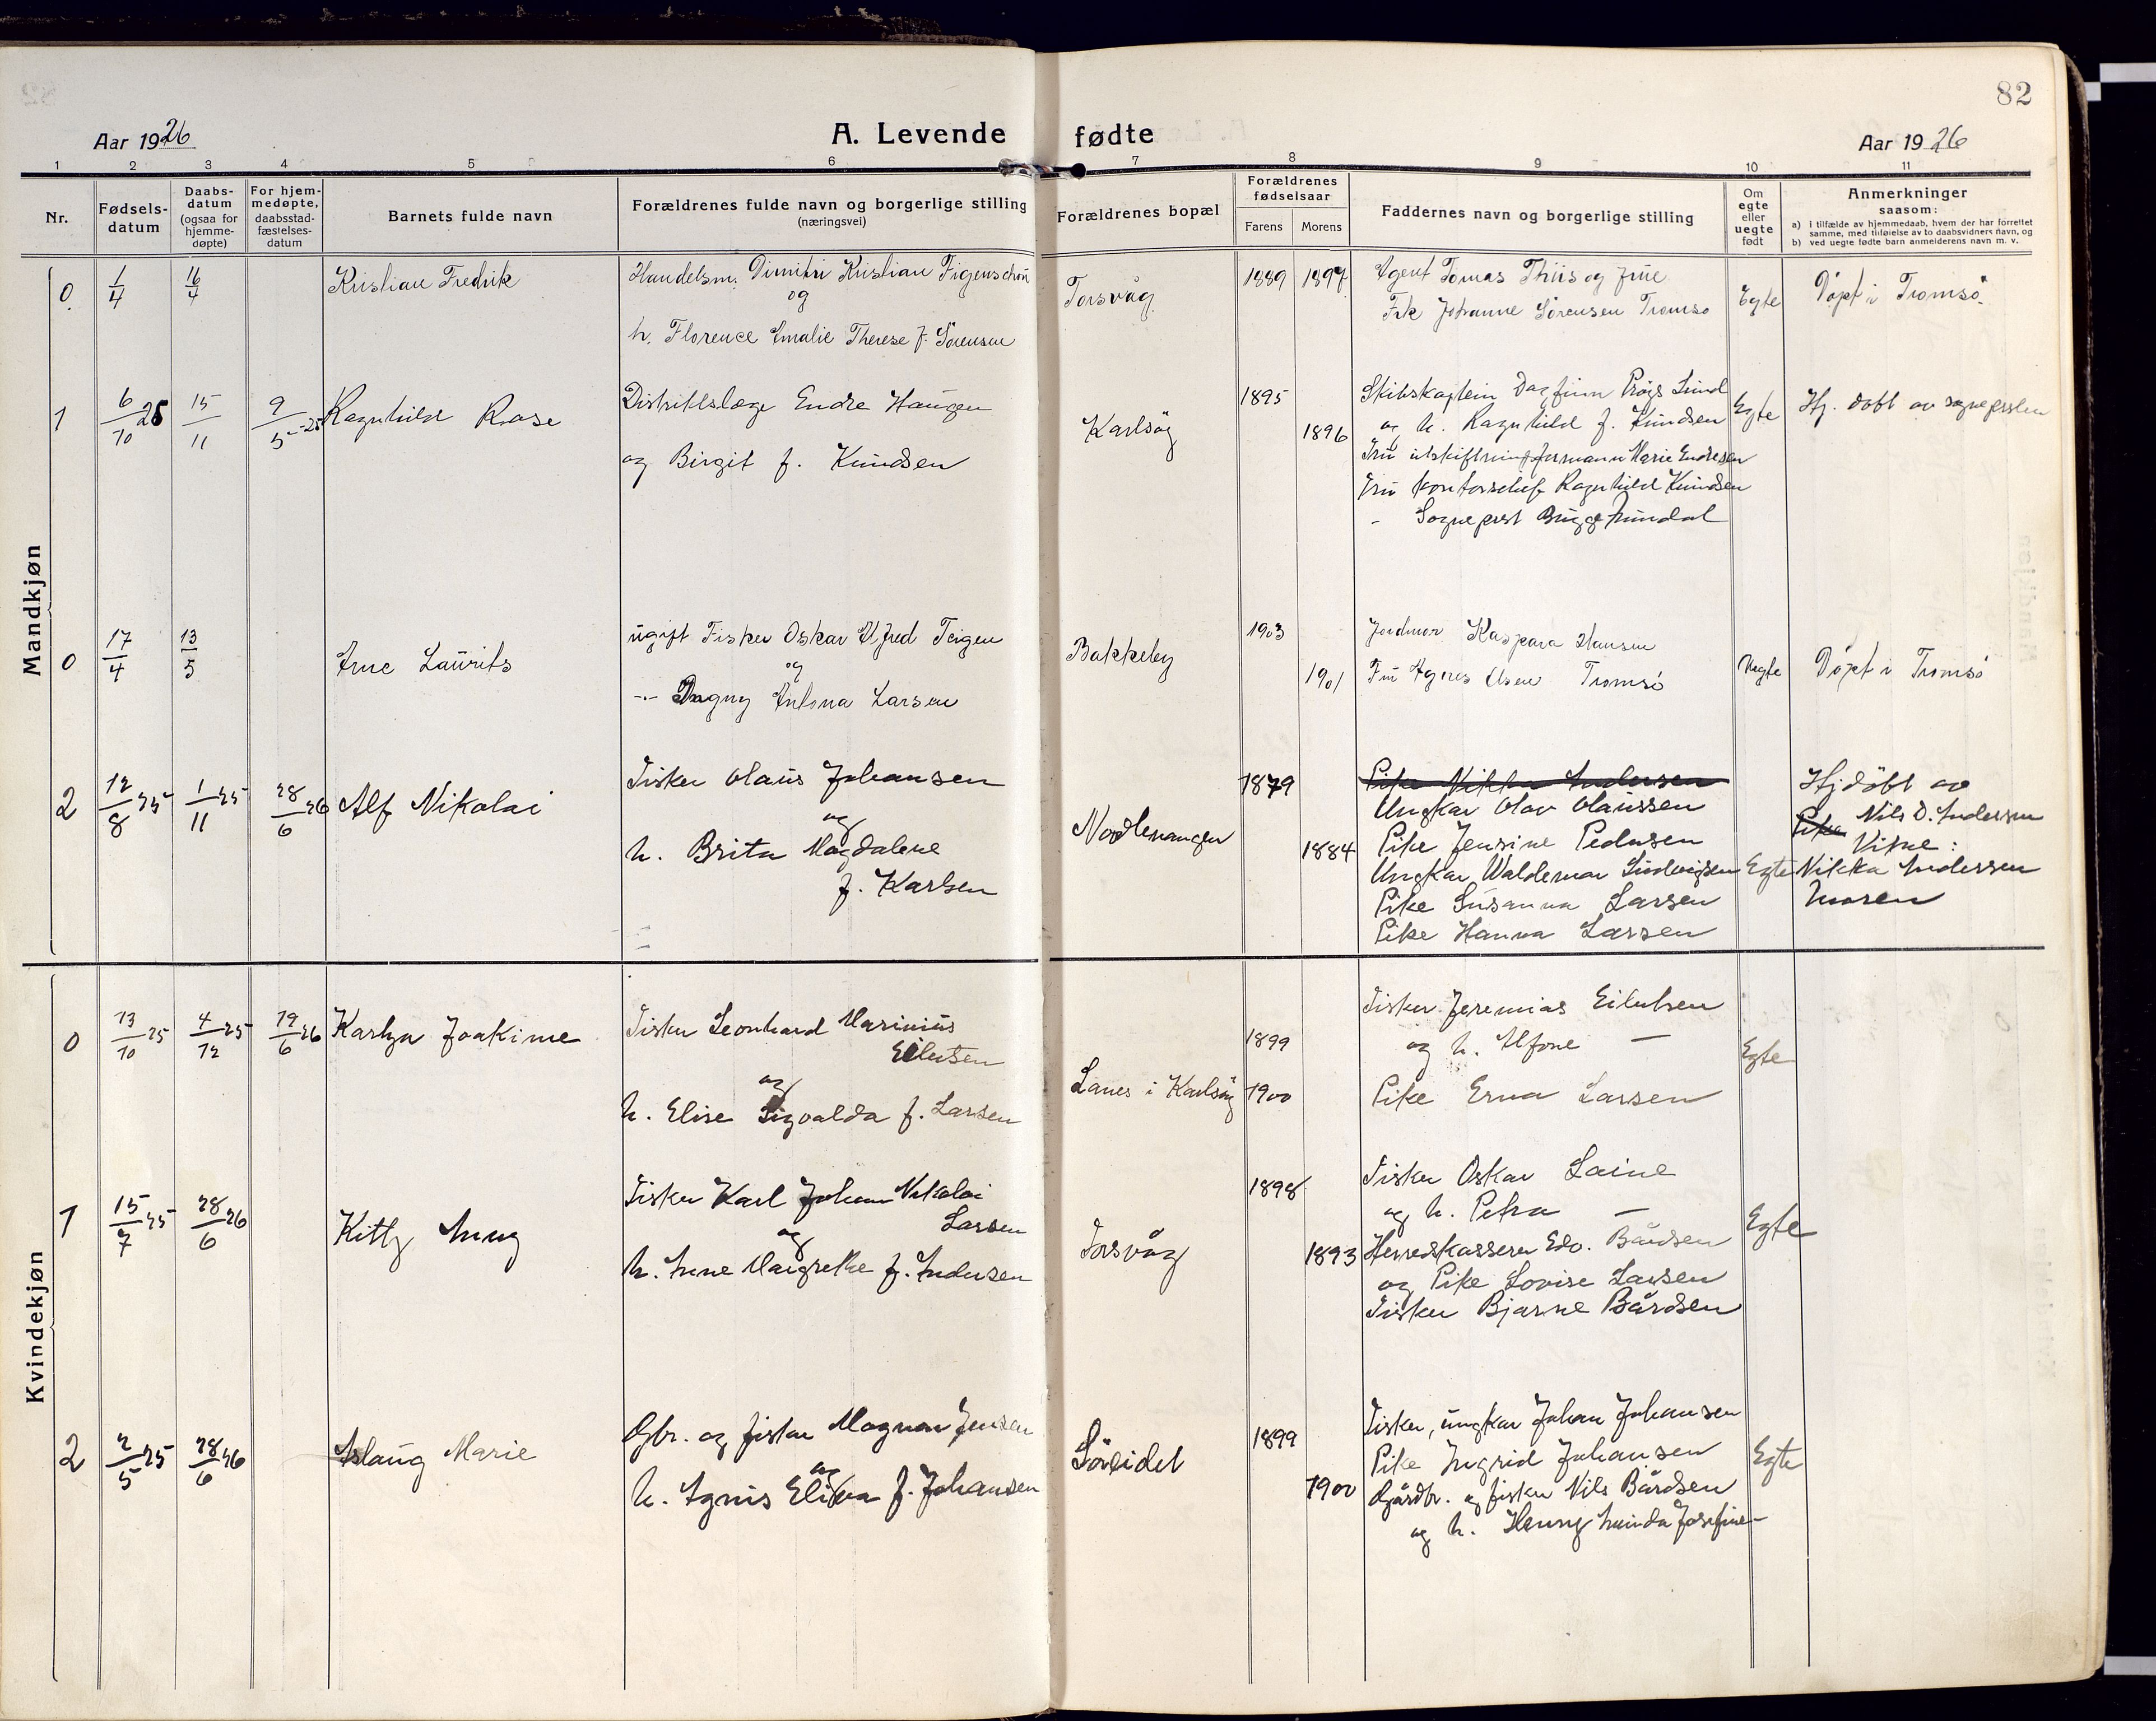 82
Aar 1926
A. Levende fødte
Aar 1926
1 2 3 4 5 6 7 8 9 10 11
Nr.
Fødsels-
datum
Daabs-
datum
(ogsaa for
hjemme-
døpte)
For hjem-
medøpte,
daabsstad-
fæstelses-
datum
Barnets fulde navn
Forældrenes fulde navn og borgerlige stilling
(næringsvei)
Forældrenes bopæl
Forældrenes
fødselsaar
Farens Morens
Faddernes navn og borgerlige stilling
Om
egte
eller
uegte
født
Anmerkninger
saasom:
a) i tilfælde av hjemmedaab, hvem der har forrettet
samme, med tilføielse av to daabsvidners navn, og
b) ved uegte fødte barn anmelderens navn m. v.
Mandkjøn
0 1/4 16/4 Kristian Fredrik
Handelsm. Dimitri Kristian Figenschou
og
h. Florence Emalie Therese f. Sørensen
Torsvåg
1889 1897
Agent Tomas Thiis og frue
Frk Johanne Sørensen Tromsø
Egte
Døpt i Tromsø
1 6/10 25 15/11 9/5-25 Ragnhild Rose
Distriktslæge Endre Haugen
og Birgit f. Knudsen
Karlsøy
1895
1896
Skibskaptein Dagfinn Lund
og h. Ragnhild f. Knudsen
Fru Marie Endresen
Fru kontorchef Ragnhild Knudsen
- Sogneprest
Egte
Hj. døbt av sogneprsten
0 17/4 13/5 Arne Laurits
ugift Fisker Oskar Alfred Teigen
og
-"- Dagny Antona Larsen
Bakkeby
1903
1901
Jordmor Kaspara Hansen
Fru Agnes Olsen Tromsø
Uegte
Døpt i Tromsø
2 12/8 25 1/11 25 28/6 26 Alf Nikolai
Fisker Olaus Johansen
og
h. Brita Magdalene
f. Karlsen
Nordlenangen
1879
1884
Pike Nikka Andersen
Ungkar Olav Olaussen
Pike Jensine Pedersen
Ungkar Waldemar Ludvigsen
Pike Susanna Larsen
Pike Hanna Larsen
Egte
Hjdøbt av
Pike Nils D. Andersen
Vitne:
Nikka Andersen
moren
Kvindekjøn
0 13/10 25 4/12 25 19/6 26 Karlza Joakime
Fisker Leonhard Marinius
Eilertsen
og
h. Elise Sigvalda f. Larsen
Lanes i Karlsøy
1899
1900
Fisker Jeremias Eilertsen
og h. Alfone —
Pike Erna Larsen
Egte
1 15/7 25 28/6 26 Kitty Anny
Fisker Karl Johan Nikolai
Larsen
og
h. Anne Margrethe f. Andersen
Torsvåg
1898
1893
Fisker Oskar Laine
og h. Petra —
Herredskasserer Edv. Bårdsen
og Pike Lovise Larsen
Fisker Bjarne Bårdsen
Egte
2 2/5 25 28/6 26 Aslaug Marie
Gbr. og fisker Magnar Jensen
og
h. Agnis Elina f. Johansen
Søreidet
1899
1900
Fisker, ungkar Johan Johansen
Pike Ingrid Johansen
Gårdbr. og fisker Nils Bårdsen
og h. Henny Josefine —
Egte